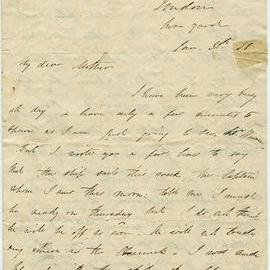 London
Jan. 3
My dear Mother
I have been very busy
all day & have only a few minutes to
spare as I am just going to
but I write you a few lines to say
that the ship sails this week the Captain
whom I saw this morng. told me I must
be ready on Thursday but I do not think
he will be off so soon. He will not touch
any where in the I was